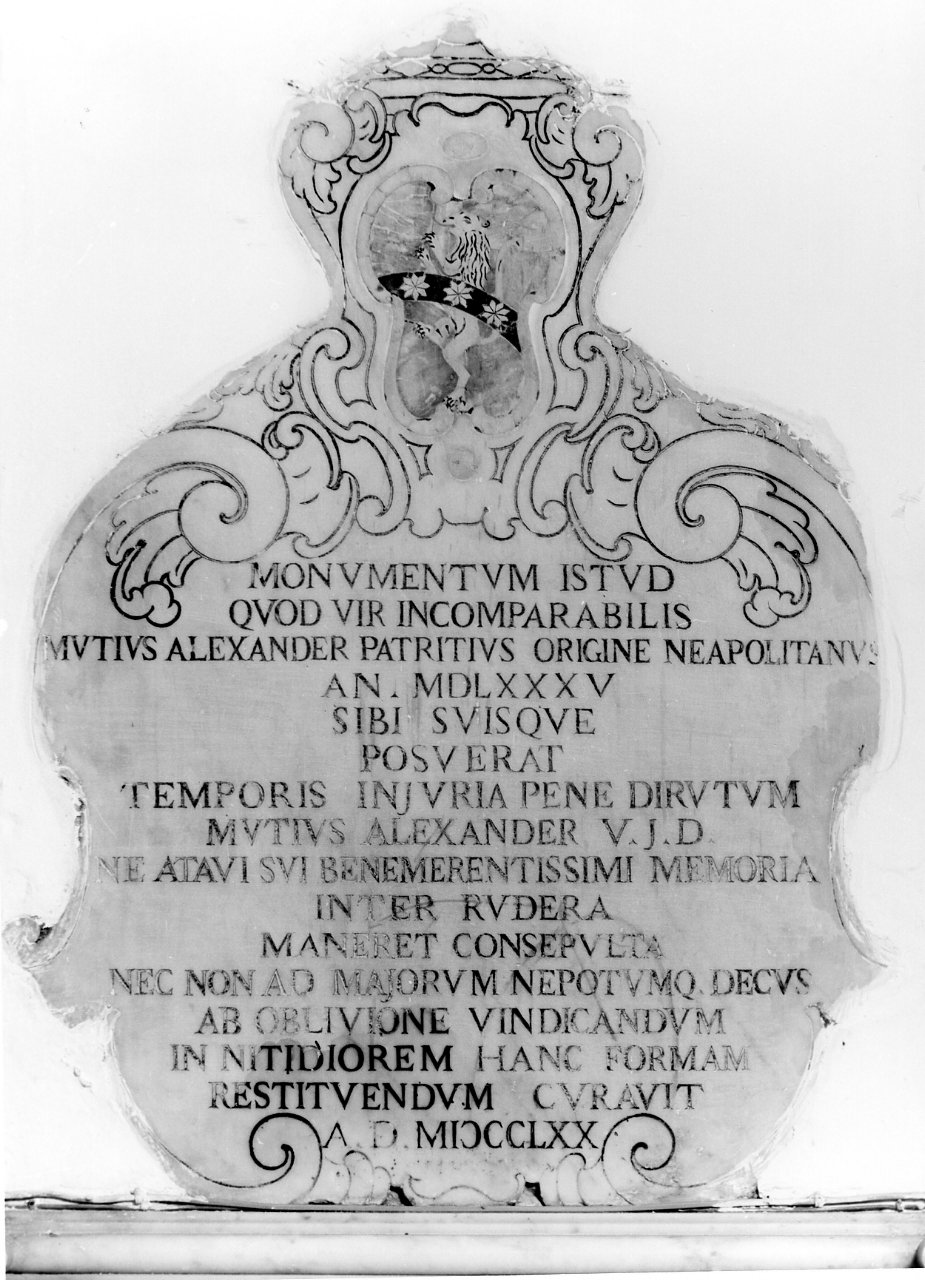 MONVMENTVM ISTVD
QVOD VIR INCOMPARABILIS
MVTIVS ALEXANDER PATRITIVS ORIGINE NEAPOLITANVS
AN. MDLXXXV
SIBI SVISQVE
POSVERAT
TEMPORIS INJVRIA PENE DIRVTVM
MVTIVS ALEXANDER V.J.D.
NE ATAVI SVI BENEMERENTISSIMI MEMORIA
INTER RVDERA
MANERET CONSEPVLTA
NEC NON AD MAJORVM NEPOTVMQ. DECVS
AB OBLIVIONE VINDICANDVM
IN NITIDIOREM HANC FORMAM
RESTITVENDVM CVRAVIT
A. D. MIƆCCLXX